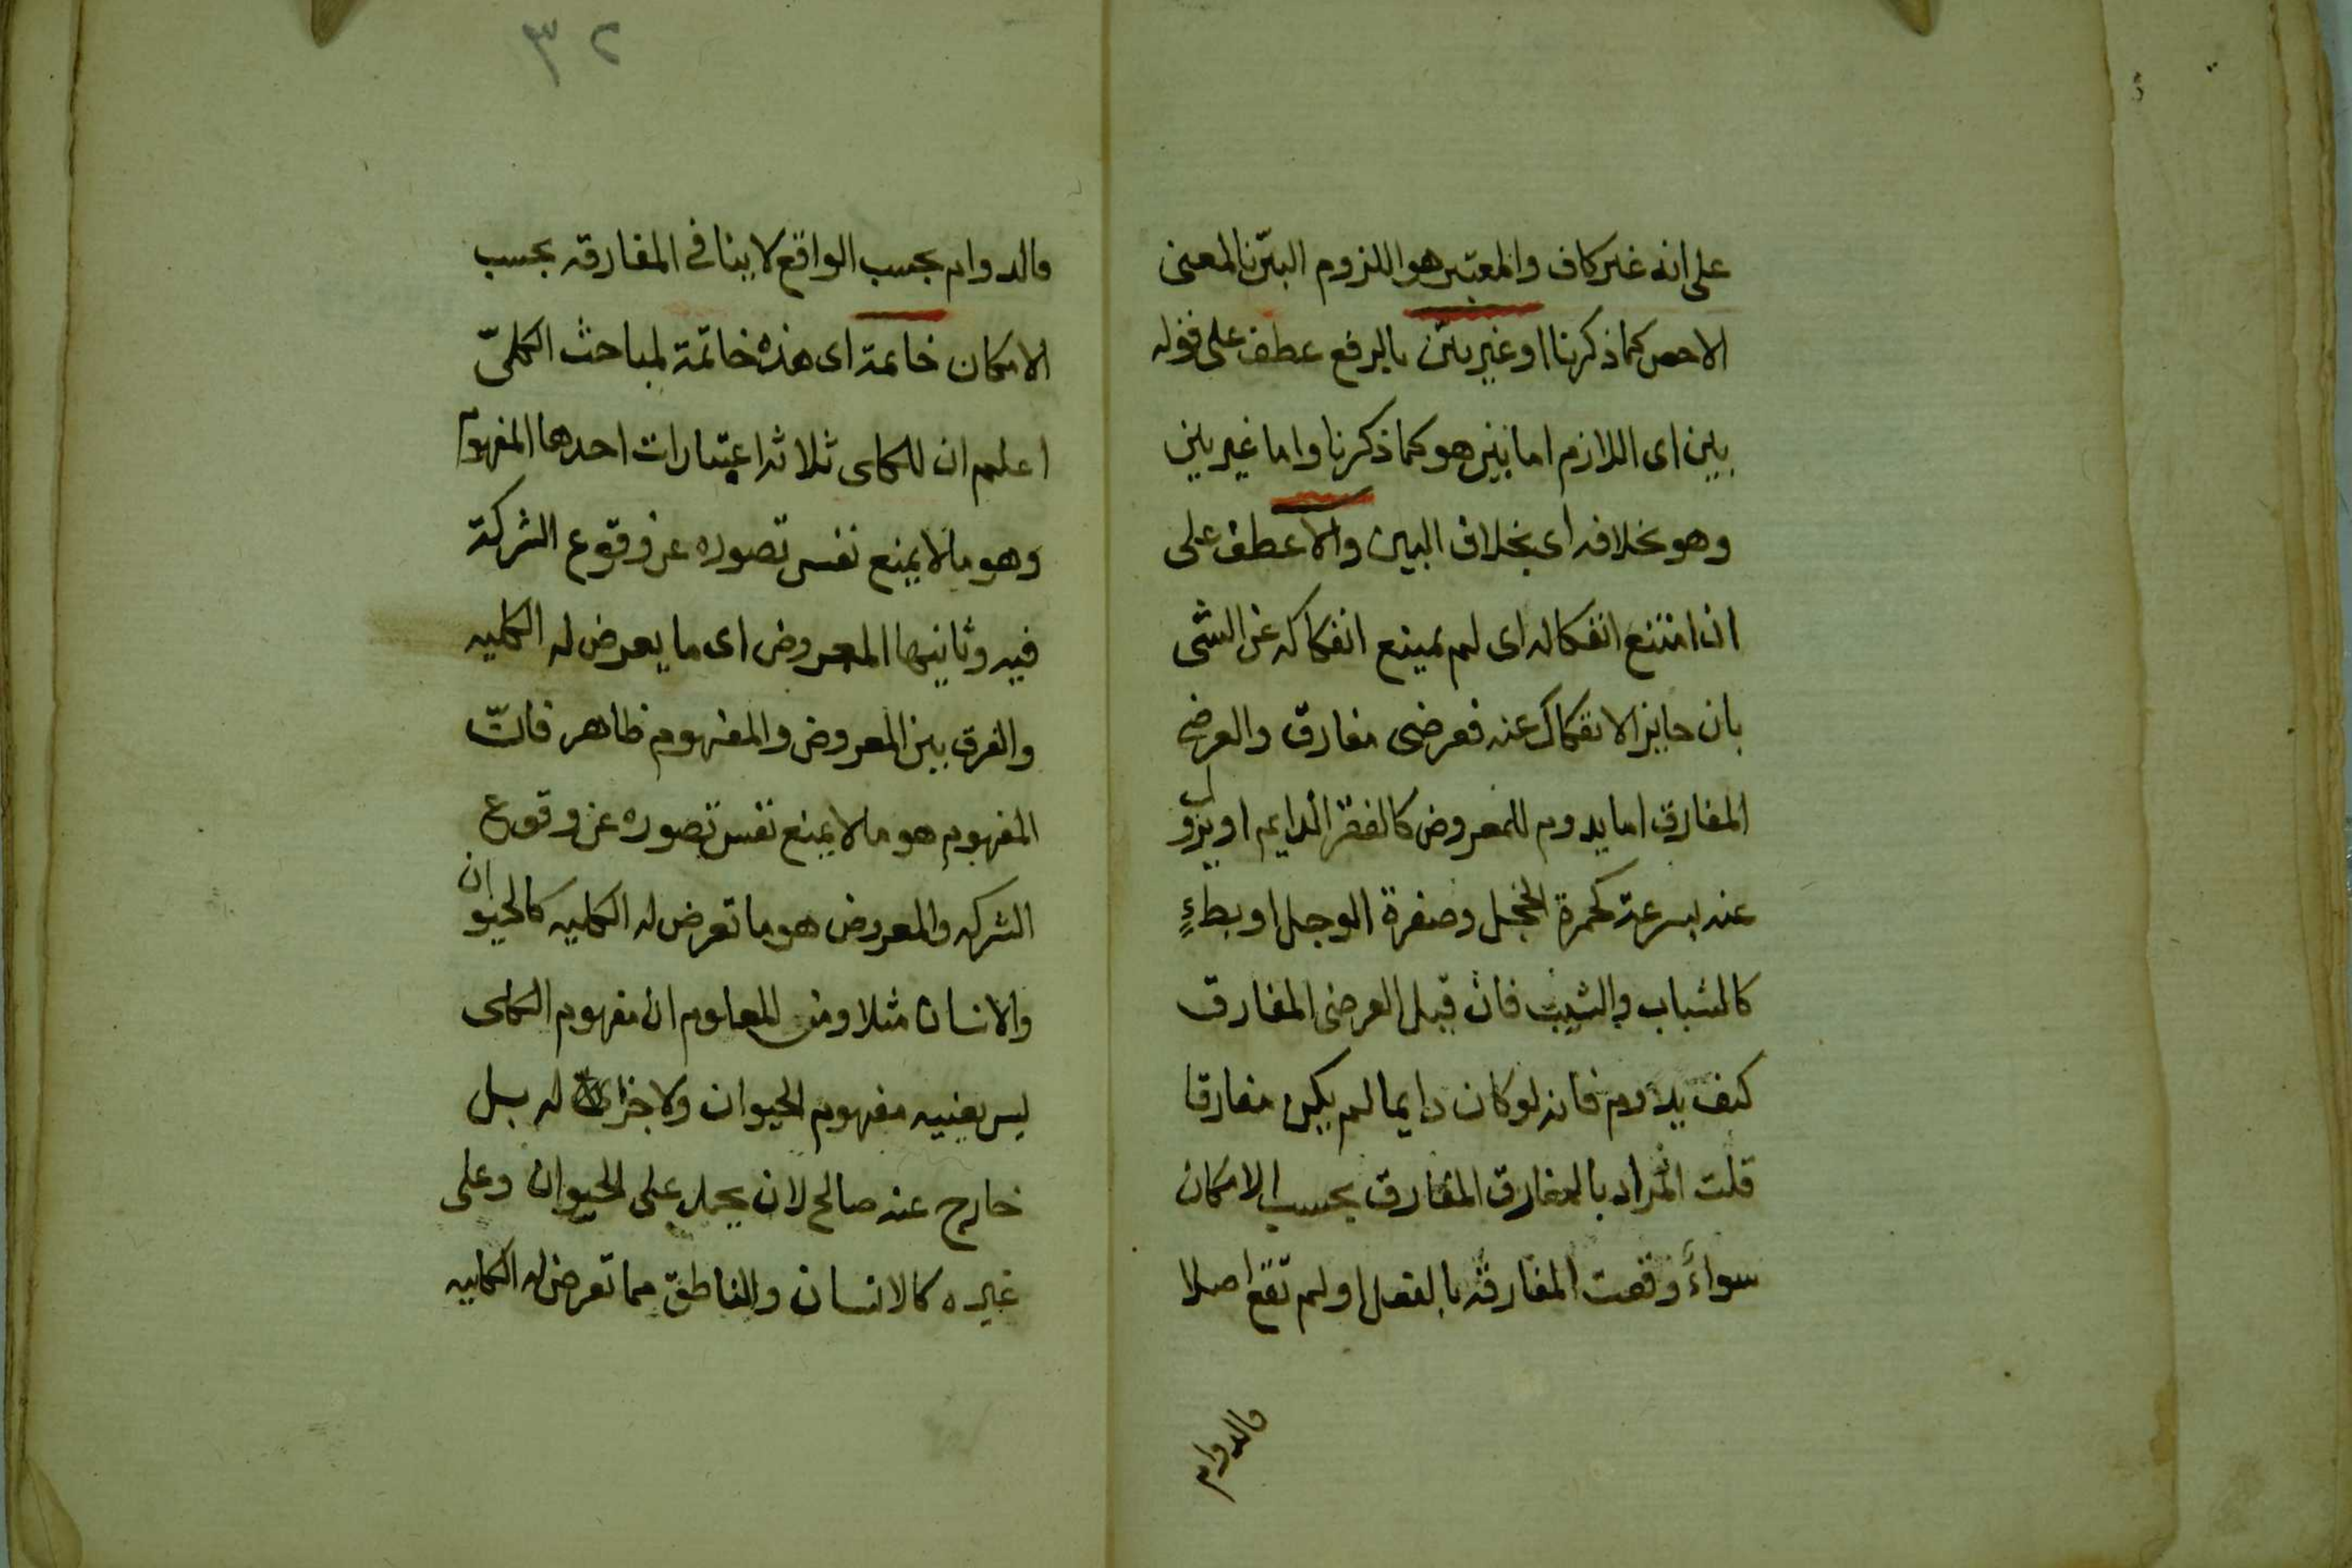 على انه غير كاف والمعتبر هو اللزوم البيّن بالمعنى
الاخص كما ذكرنا او غير بيّن بالرفع عطف على قوله
بين اى اللازم اما بين هو كما ذكرنا واما غير بين
وهو بخلافه اى بخلاف البين والا عطف على
ان امتنع انفكاكه اى لم يمتنع انفكاكه عن الشى
بان جايز الانفكاك عنه فعرضى مفارق والعرضى
المفارق اما يدوم للمعروض كالفقر الدايم او يزول
عنه بسرعة كحمرة الخجل وصفرة الوجل او بطاءٍ
كالشباب والشيب فان قيل العرضى المفارق
كيف يدوم فانه لو كان دايما لم يكن مفارقا
قلت المراد بالمفارق المفارق بحسب الامكان
سواءً وقعت المفارقة بالفعل او لم تقع اصلا
والدوام
٣٢
والدوام بحسب الواقع لا ينافى المفارقه بحسب
الامكان خاتمة اى هذه خاتمة لمباحث الكلىّ
اعلم ان للكلى ثلاثه اعتبارات احدها المفهوم
وهو ما لا يمنع نفس تصوره عن وقوع الشركة
فيه وثانيها المعروض اى ما يعرض له الكليه
والفرق بين المعروض والمفهوم ظاهر فانّ
المفهوم هو ما لا يمنع نفس تصوره عن وقوع
الشركه والمعروض هو ما تعرض له الكليه كالحيوان
والانسان مثلا ومن المعلوم ان مفهوم الكلى
ليس بعينيه مفهوم الحيوان ولا جزا له بل
خارج عنه صالح لان يحمل على الحيوان وعلى
غيره كالانسان والناطق مما تعرض له الكليه